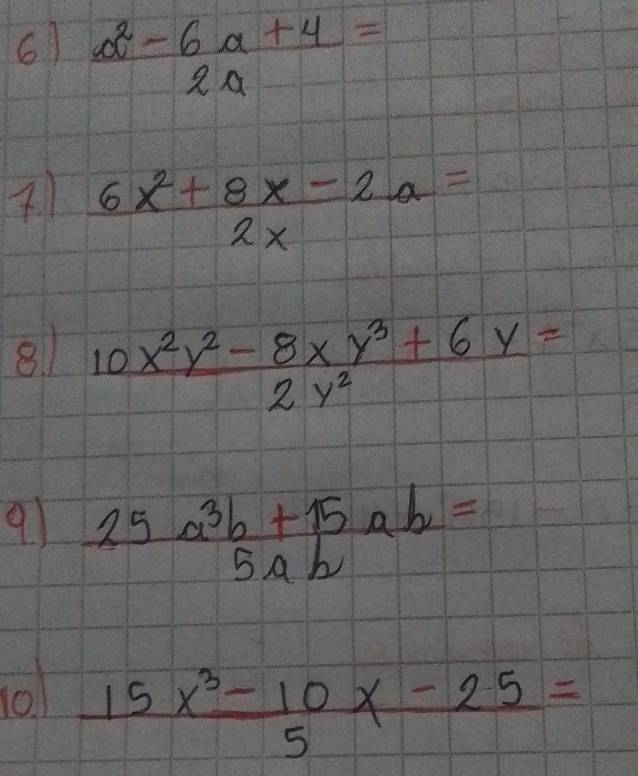 6) a² - 6a + 4 =
2a
7.) 6x² + 8x - 2a =
2x
8.) 10x²y² - 8xy³ + 6y =
2y²
9) 25a³b + 15ab =
5ab
10.) 15x³ - 10x - 25 =
5